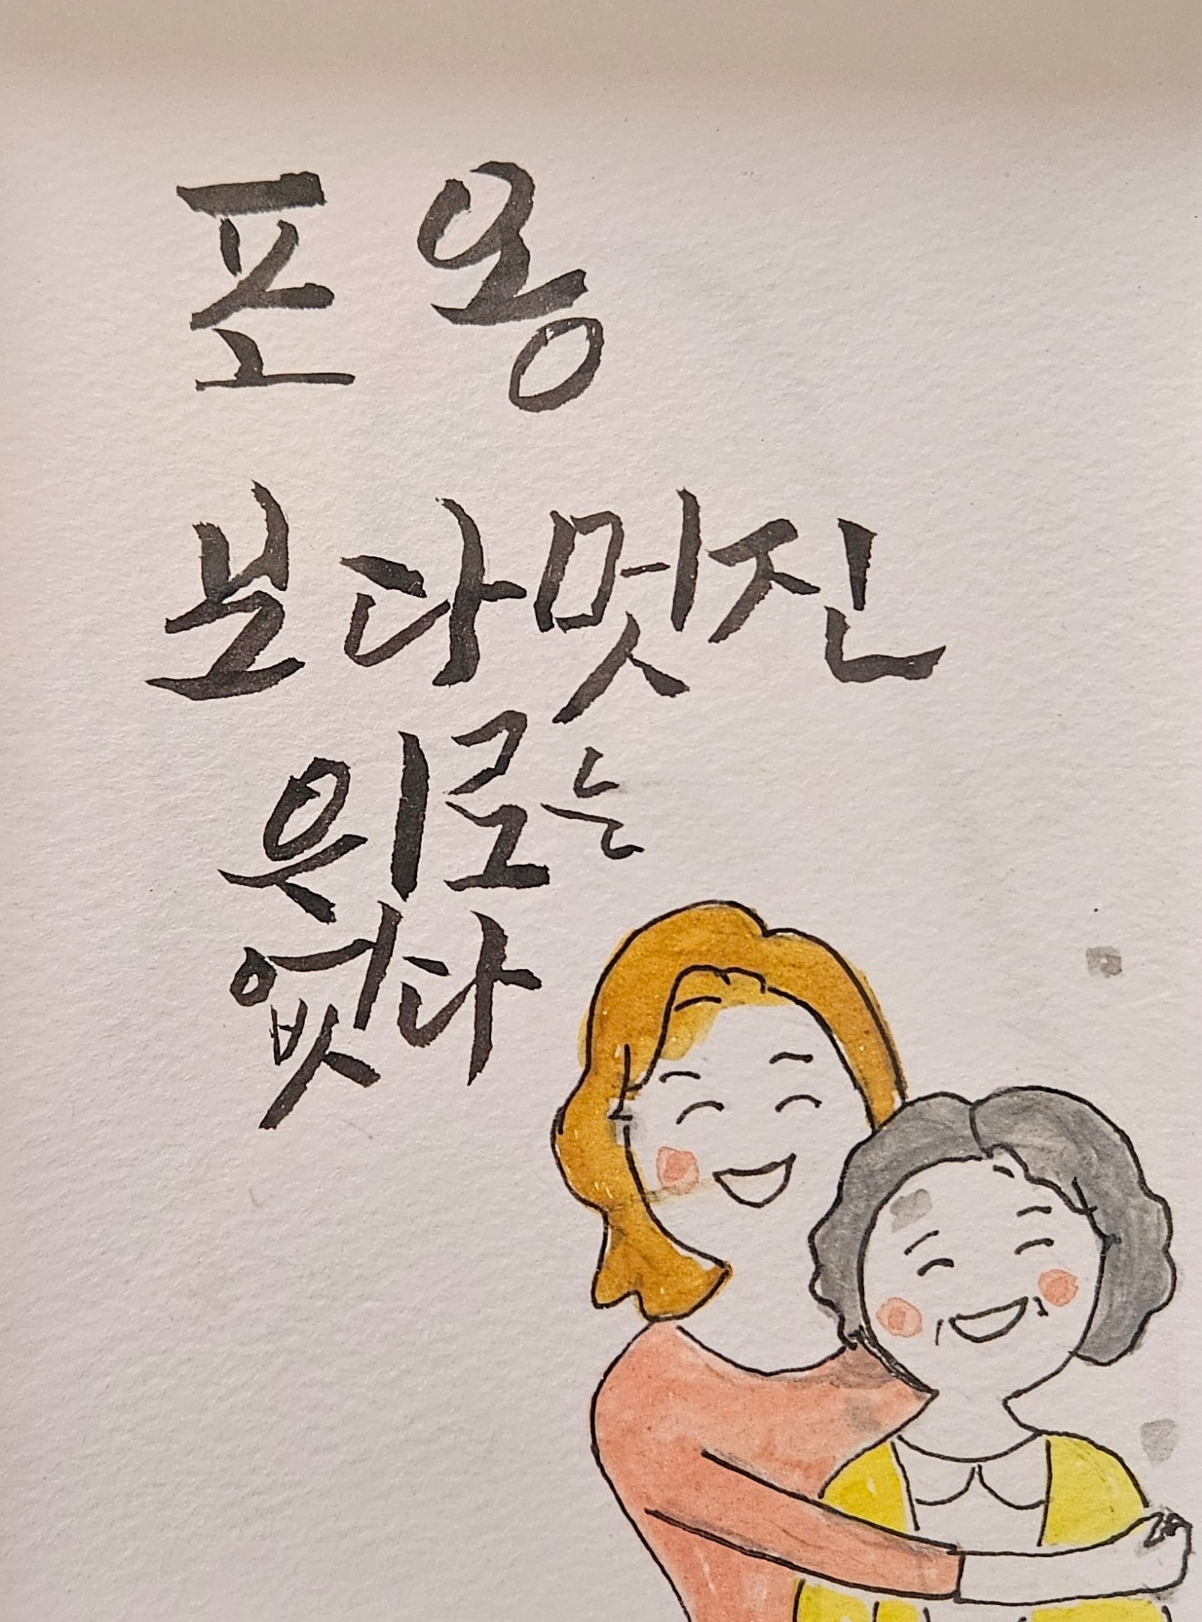 포옹
보다멋진
위로는
없다